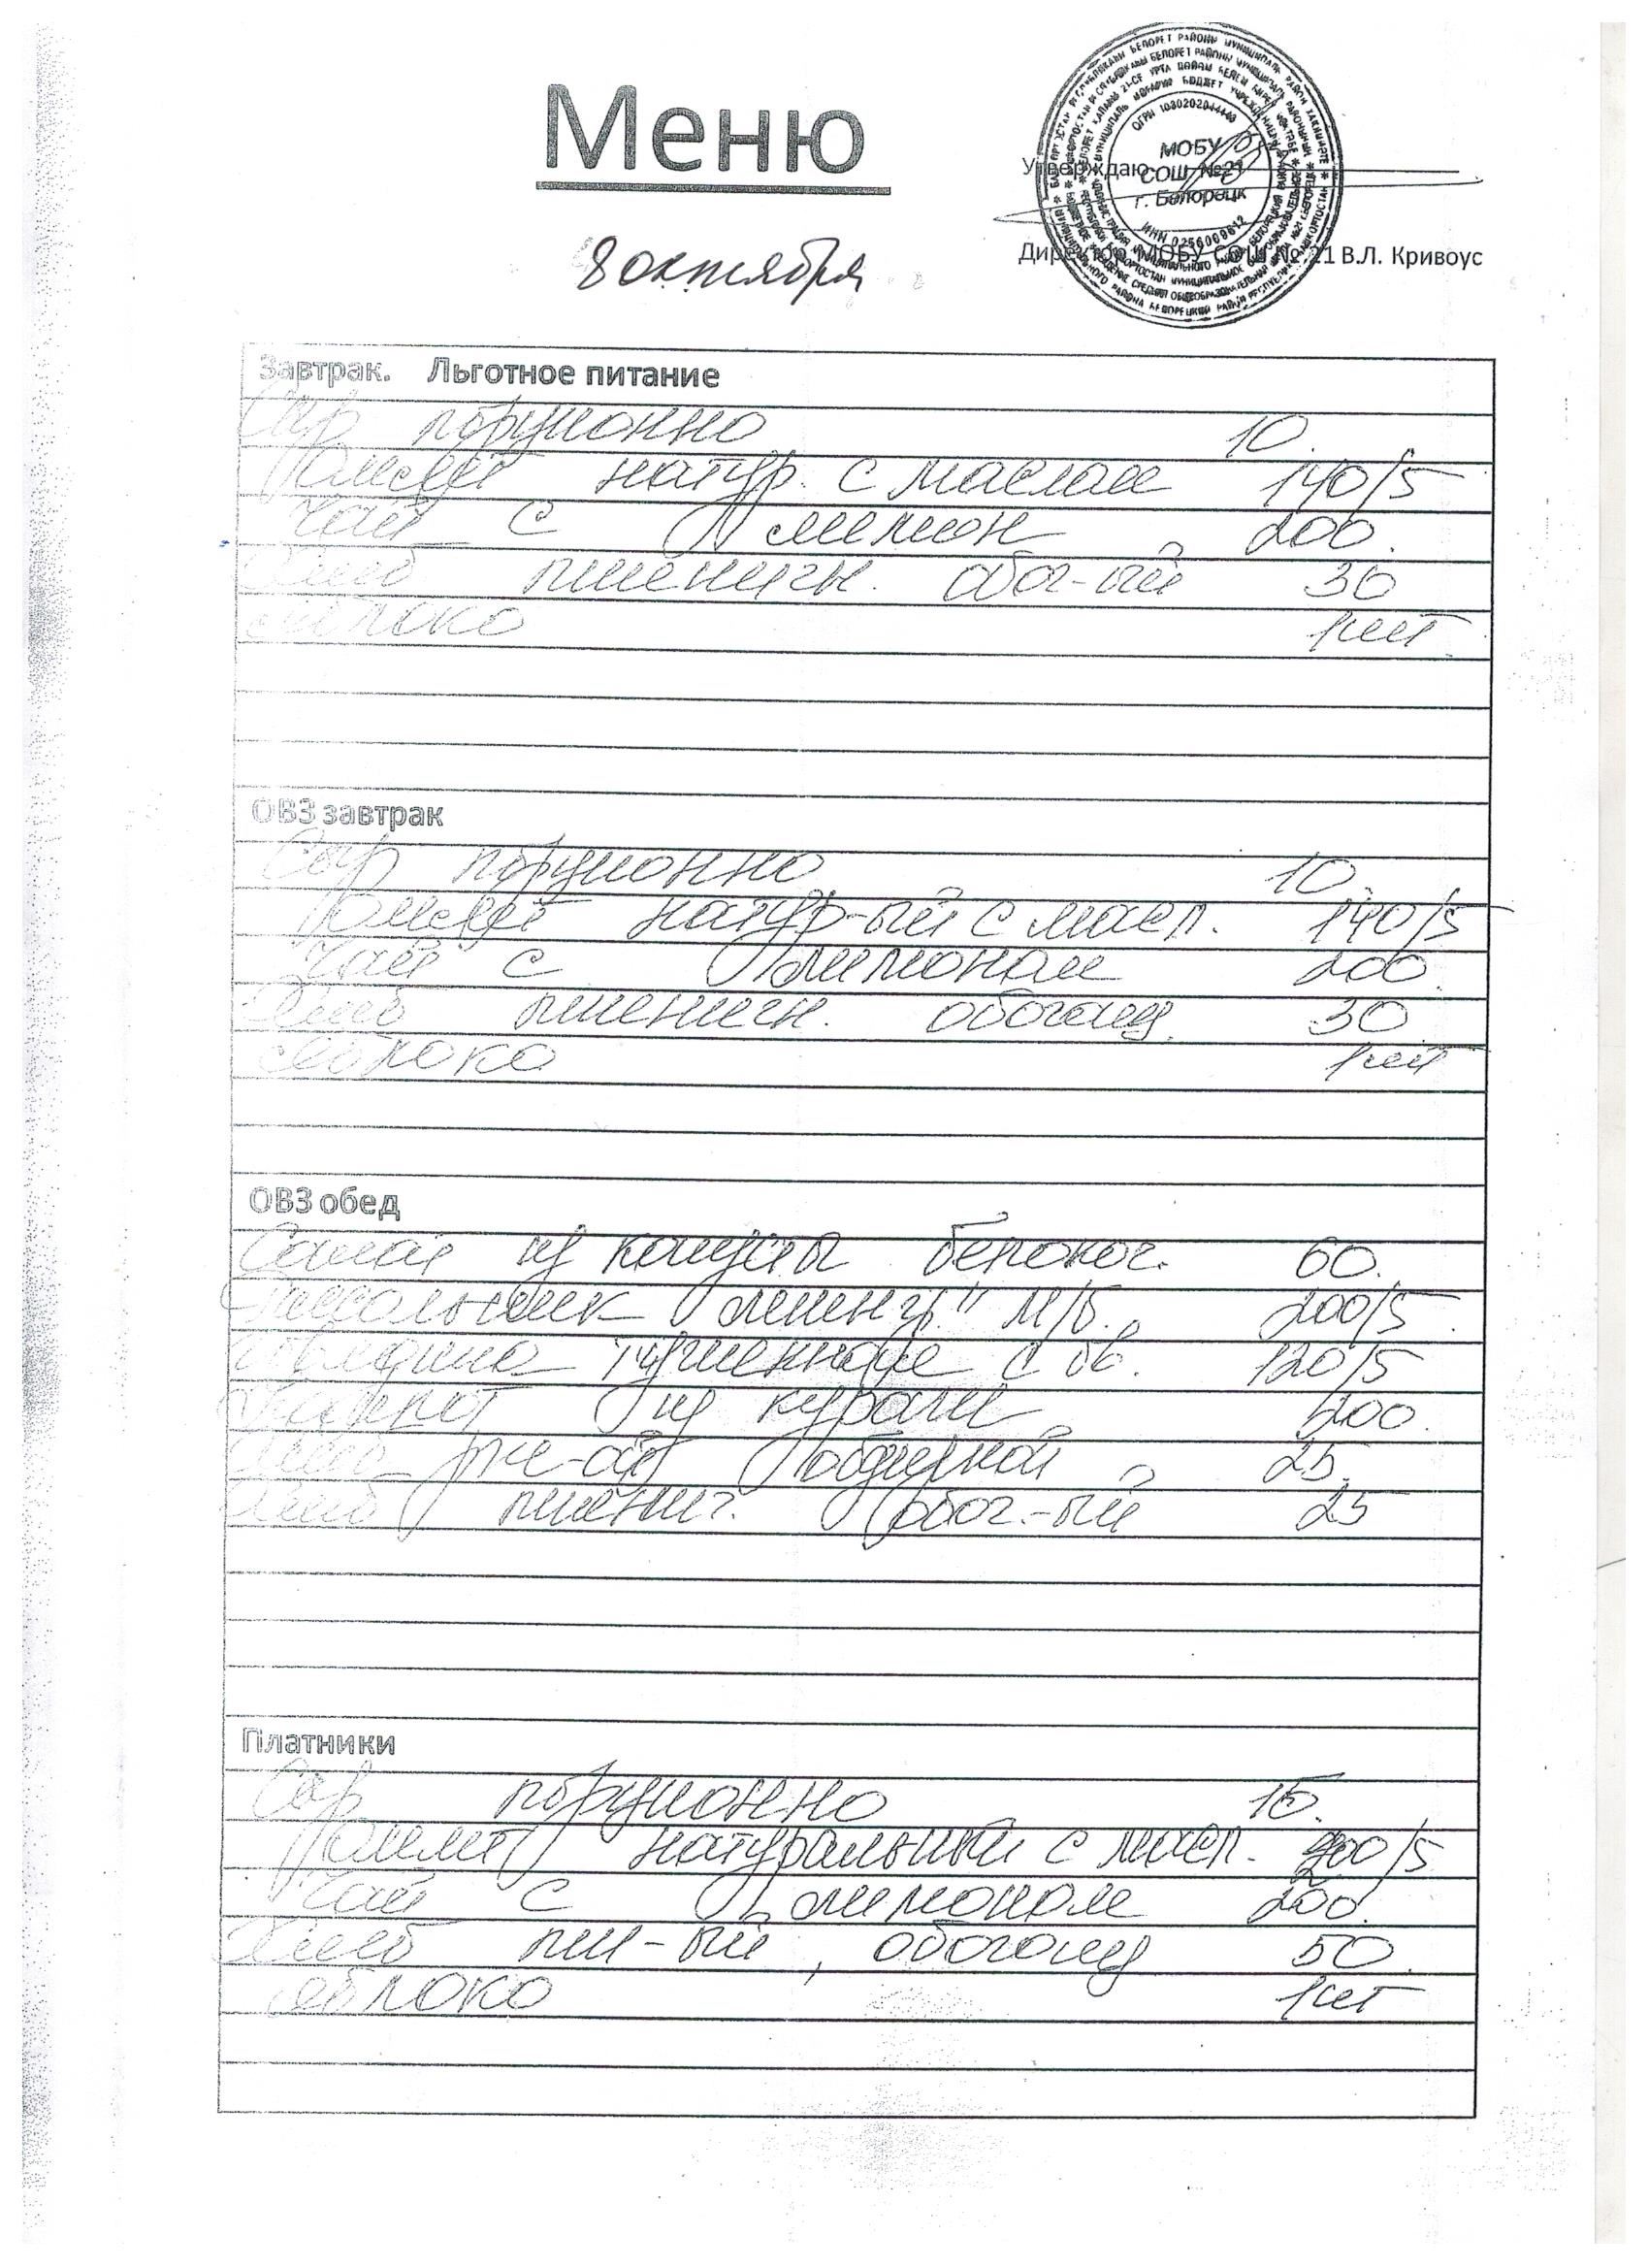 Меню
8 октября
Утверждаю
МОБУ
СОШ №21
г. Белорецк
ОГРН 1030202044440
ИНН 0256009612
Директор МОБУ СОШ № 21 В.Л. Кривоус
Завтрак. Льготное питание
Сыр порционно 10.
Омлет натур. с маслом 140/5
Чай с лимон 200.
Хлеб пшеничн. обог-ый 30
яблоко 1шт.
ОВЗ завтрак
Сыр порционно 10.
Омлет натур-ый с масл. 140/5
Чай с лимоном 200.
Хлеб пшеничн. обогащ. 30
яблоко 1шт
ОВЗ обед
Салат из капусты белокоч. 60.
М/Б. 200/5.
тушенная с ов. 120/5
из кураги 200.
Хлеб рж-ой обдирной 25.
Хлеб пшенич. обог.-ый 25
Платники
Сыр порционно 15.
Омлет натуральный с масл. 200/5
Чай с лимоном 200.
Хлеб пш-ый, обогащ 50.
яблоко 1шт